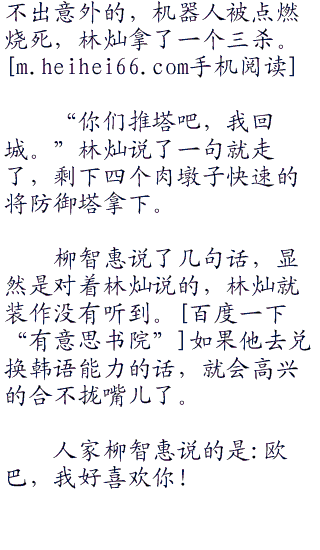 不出意外的，机器人被点燃
烧死，林灿拿了一个三杀。
[m.heihei66.com手机阅读]
“你们推塔吧，我回
城。”林灿说了一句就走
了，剩下四个肉墩子快速的
将防御塔拿下。
柳智惠说了几句话，显
然是对着林灿说的，林灿就
装作没有听到。[百度一下
“有意思书院”]如果他去兑
换韩语能力的话，就会高兴
的合不拢嘴儿了。
人家柳智惠说的是:欧
巴，我好喜欢你！